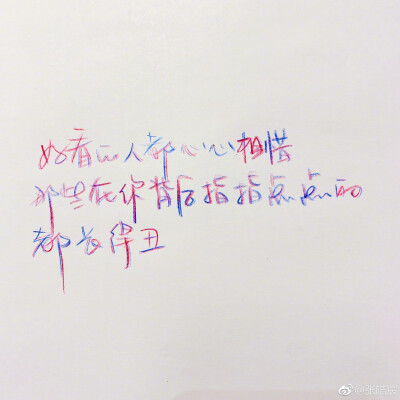 好看的人都心心相惜
那些在你背后指指点点的
都长得丑